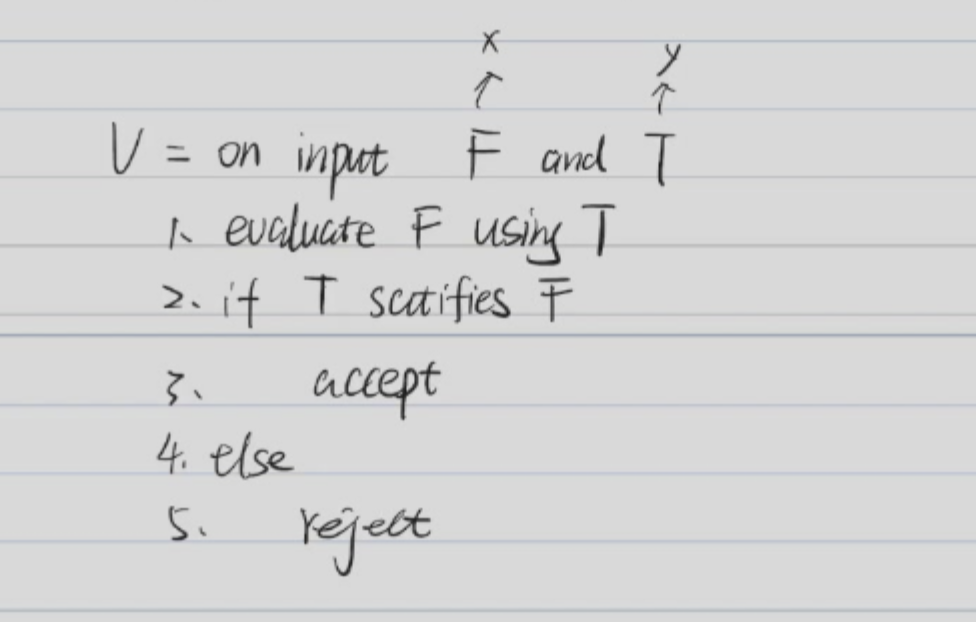 x
y
↑ ↑
V = on input F and T
1. evaluate F using T
2. if T scatifies F
3. accept
4. else
5. reject